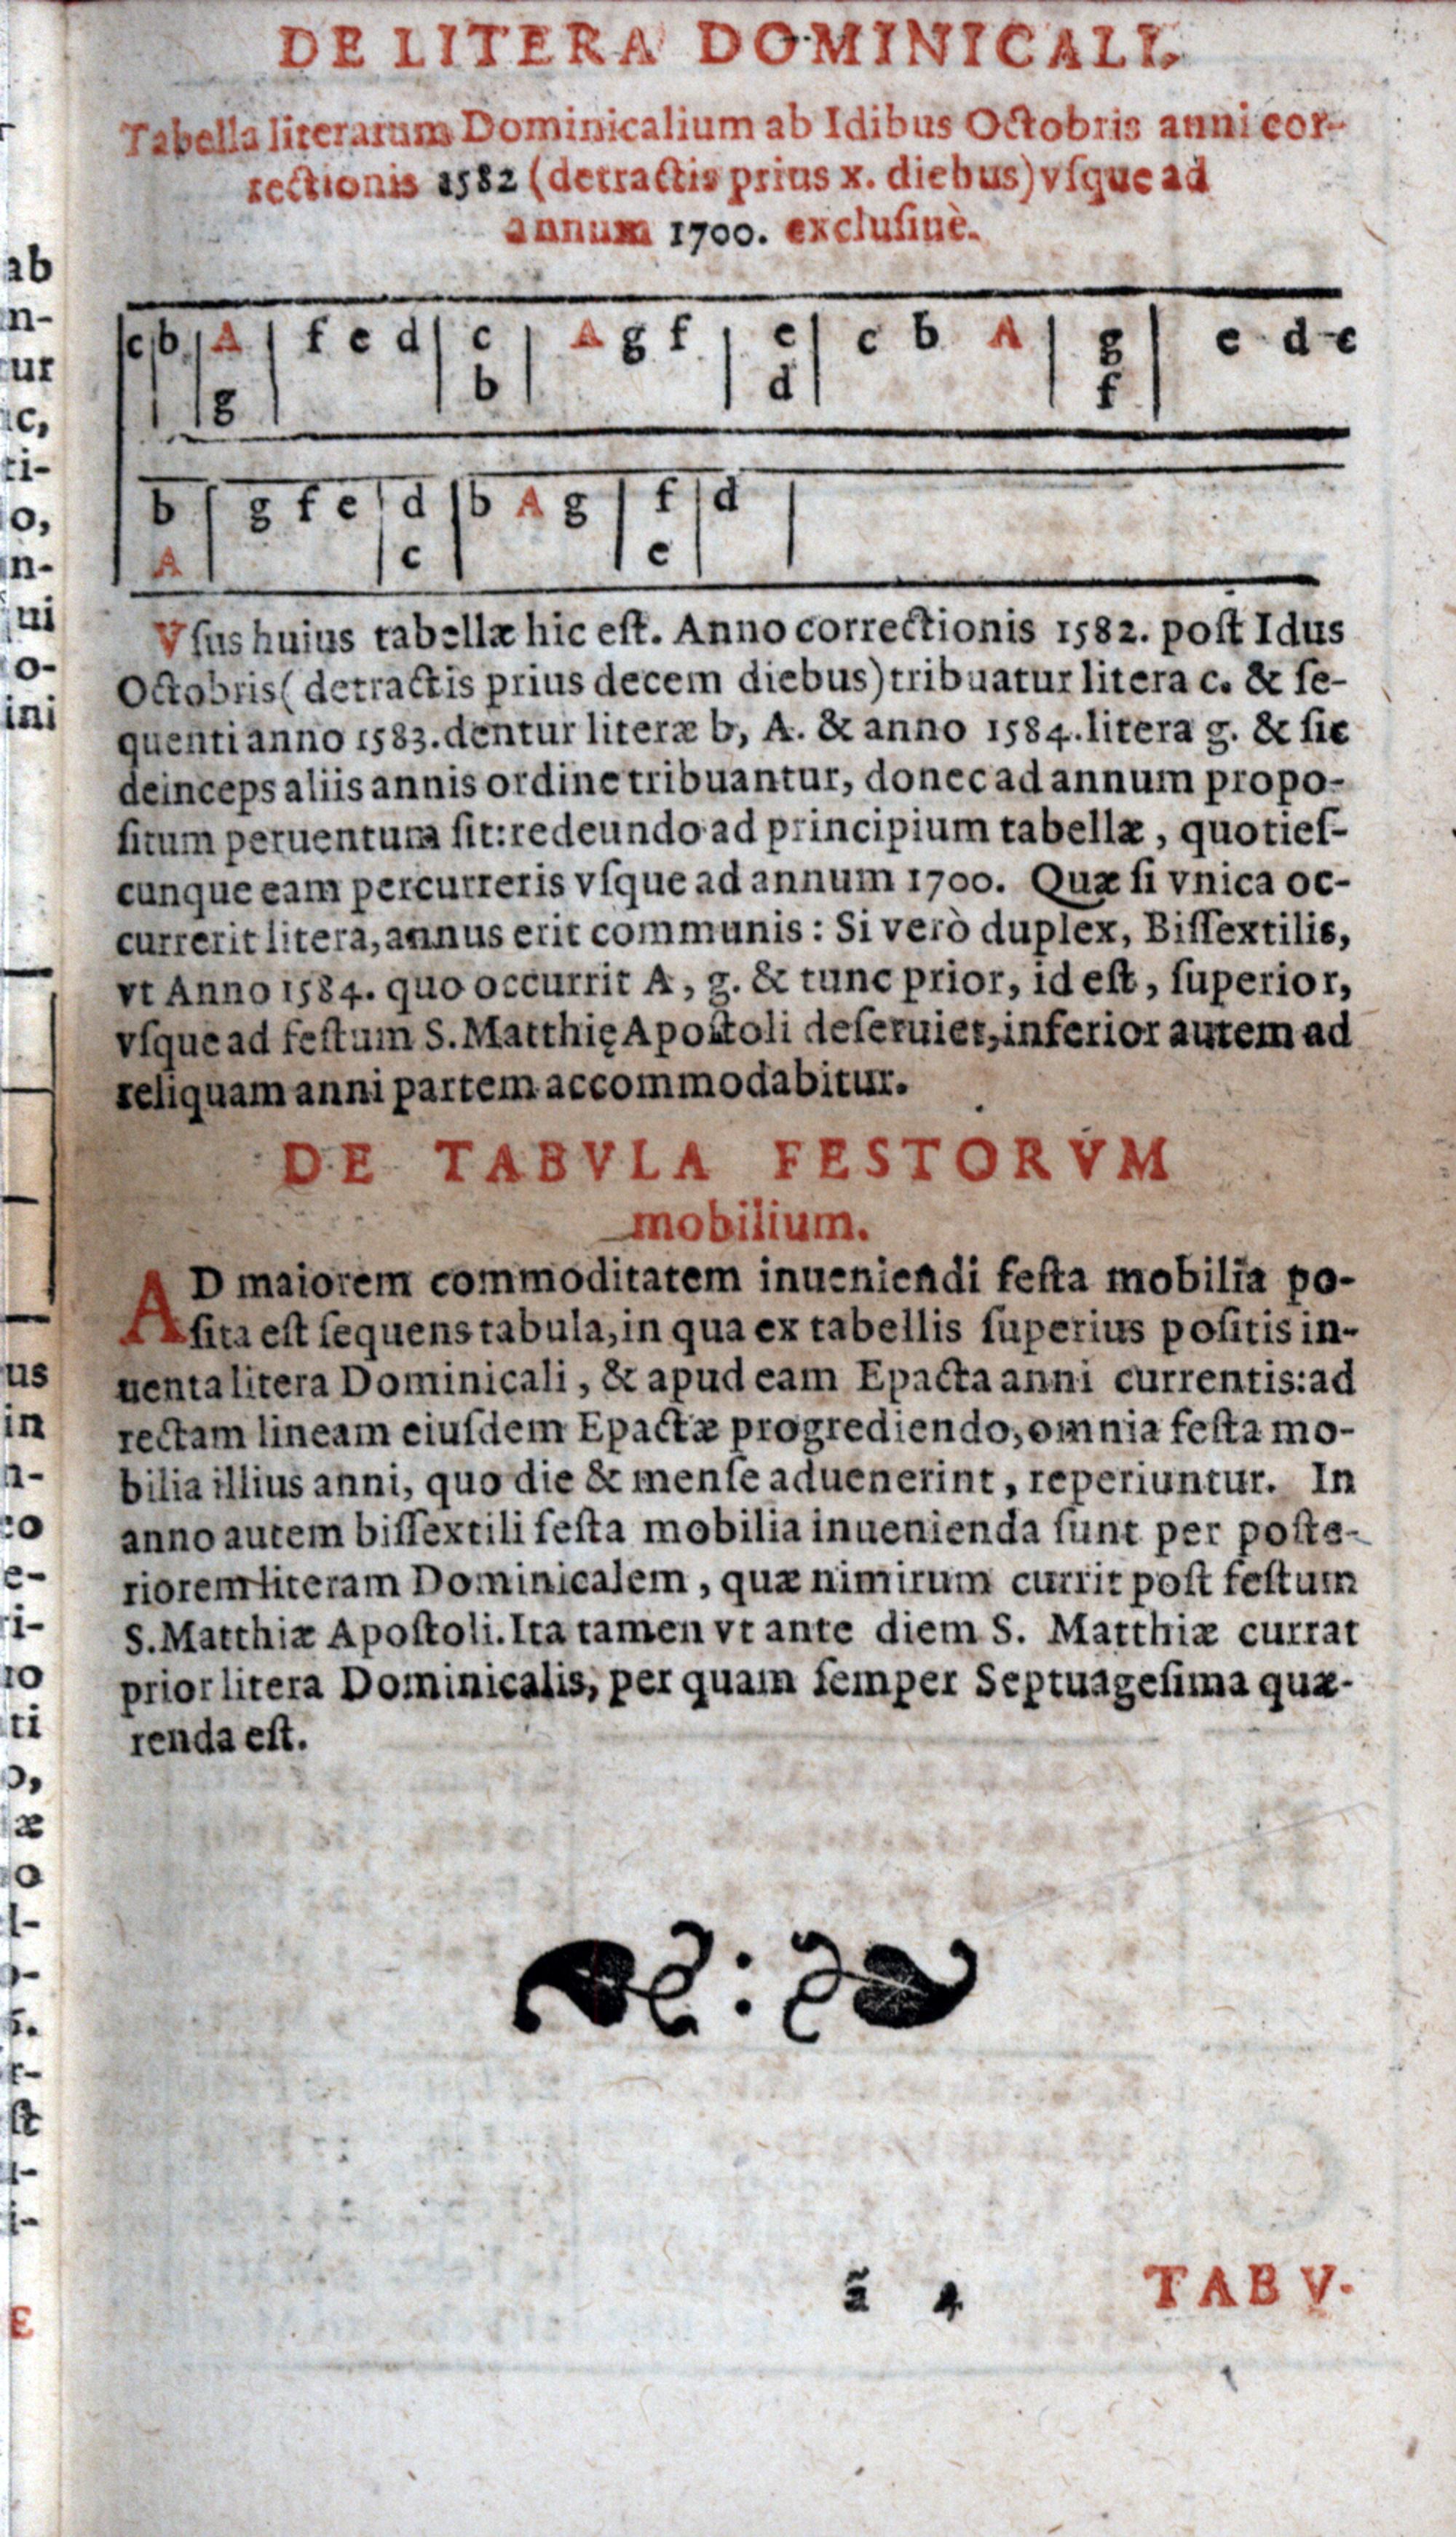 DE LITERA DOMINICALI.
Tabella literarum Dominicalium ab Idibus Octobris anni cor-
rectionis 1582 (detractis prius x. diebus) vſque ad
annum 1700. excluſiuè.
c b A f e d c A g f e c b A g e d c
g b d f
b g f e d b A g f d
A c e
Vſus huius tabellæ hic eſt. Anno correctionis 1582. poſt Idus
Octobris ( detractis prius decem diebus) tribuatur litera c. & ſe-
quenti anno 1583. dentur literæ b, A. & anno 1584. litera g. & ſic
deinceps aliis annis ordine tribuantur, donec ad annum propo-
ſitum peruentum ſit: redeundo ad principium tabellæ, quotieſ-
cunque eam percurreris vſque ad annum 1700. Quæ ſi vnica oc-
currerit litera, annus erit communis: Si verò duplex, Biſſextilis,
vt Anno 1584. quo occurrit A, g. & tunc prior, id eſt, ſuperior,
vſque ad feſtum S. Matthię Apoſtoli deſeruiet, inferior autem ad
reliquam anni partem accommodabitur.
DE TABVLA FESTORVM
mobilium.
AD maiorem commoditatem inueniendi feſta mobilia po-
ſita eſt ſequens tabula, in qua ex tabellis ſuperius poſitis in-
uenta litera Dominicali, & apud eam Epacta anni currentis: ad
rectam lineam eiuſdem Epactæ progrediendo, omnia feſta mo-
bilia illius anni, quo die & menſe aduenerint, reperiuntur. In
anno autem biſſextili feſta mobilia inuenienda ſunt per poſte-
riorem literam Dominicalem, quæ nimirum currit poſt feſtum
S. Matthiæ Apoſtoli. Ita tamen vt ante diem S. Matthiæ currat
prior litera Dominicalis, per quam ſemper Septuageſima quæ-
renda eſt.
ã 4 TABV-